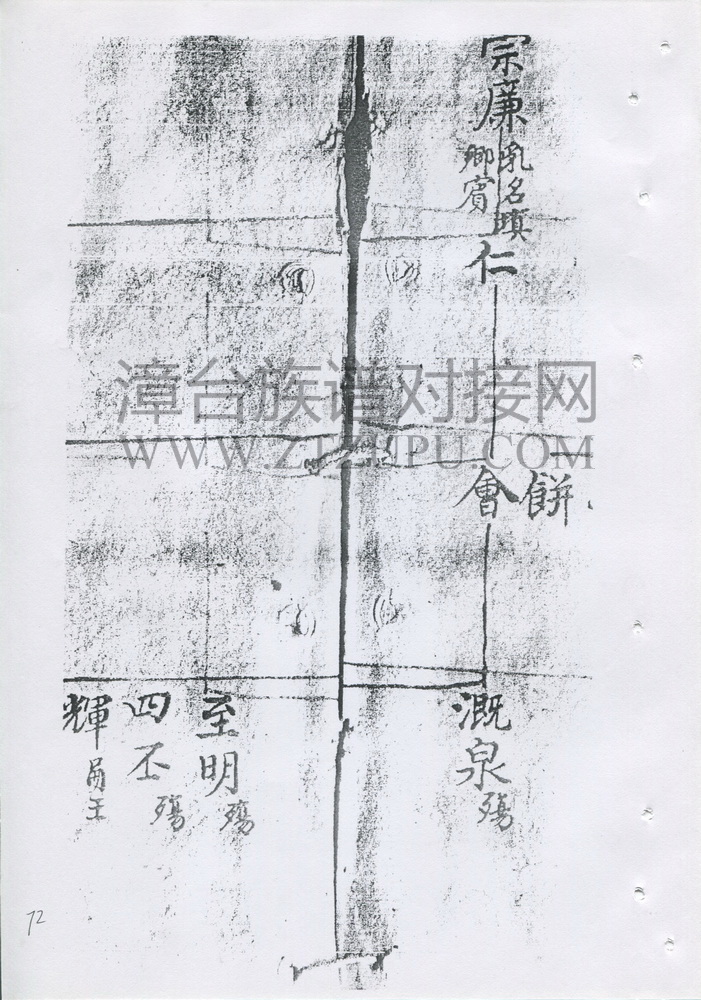 宗廉
乳名瑱
鄉賓
仁
餅
會
溉泉
殤
至明
殤
四丕
殤
輝
漳台族谱对接网
WWW.ZTZUPU.COM
72